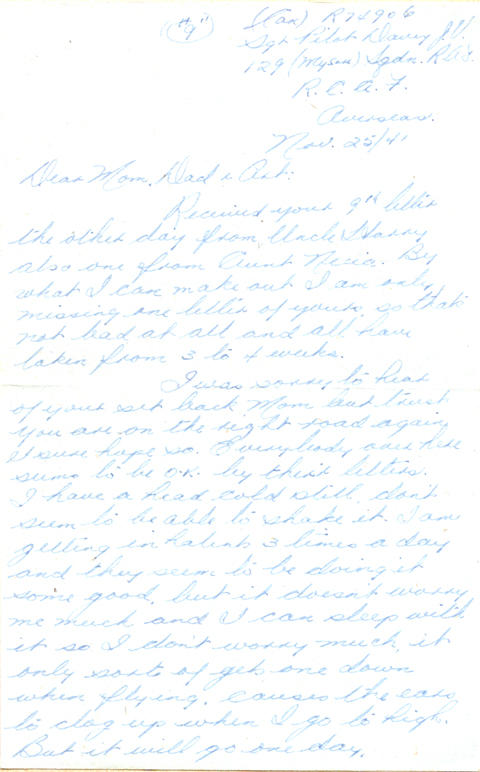 "9"
(Can) R74906
Sgt Pilot Davy J.V.
129 (Mysore) Sqdn. R.A.F.
R.C.A.F.
Overseas.
Nov. 25/41
Dear Mom, Dad & Art:
Received your 9th letter
the other day from Uncle Harry
also one from Aunt By
what I can make out I am only
missing one letter of yours, so thats
not bad at all and all have
taken from 3 to 4 weeks.
I was sorry to hear
of your set back Mom but trust
you are on the right road again
I sure hope so. Everybody over here
seems to be O.K. by their letters.
I have a head cold still, dont
seem to be able to shake it. I am
getting inhalents 3 times a day
and they seem to be doing it
some good, but it doesnt worry
me much and I can sleep with
it so I dont worry much, it
only sorts of gets one down
when flying, causes the ears
to clog up when I go to high.
But it will go one day.